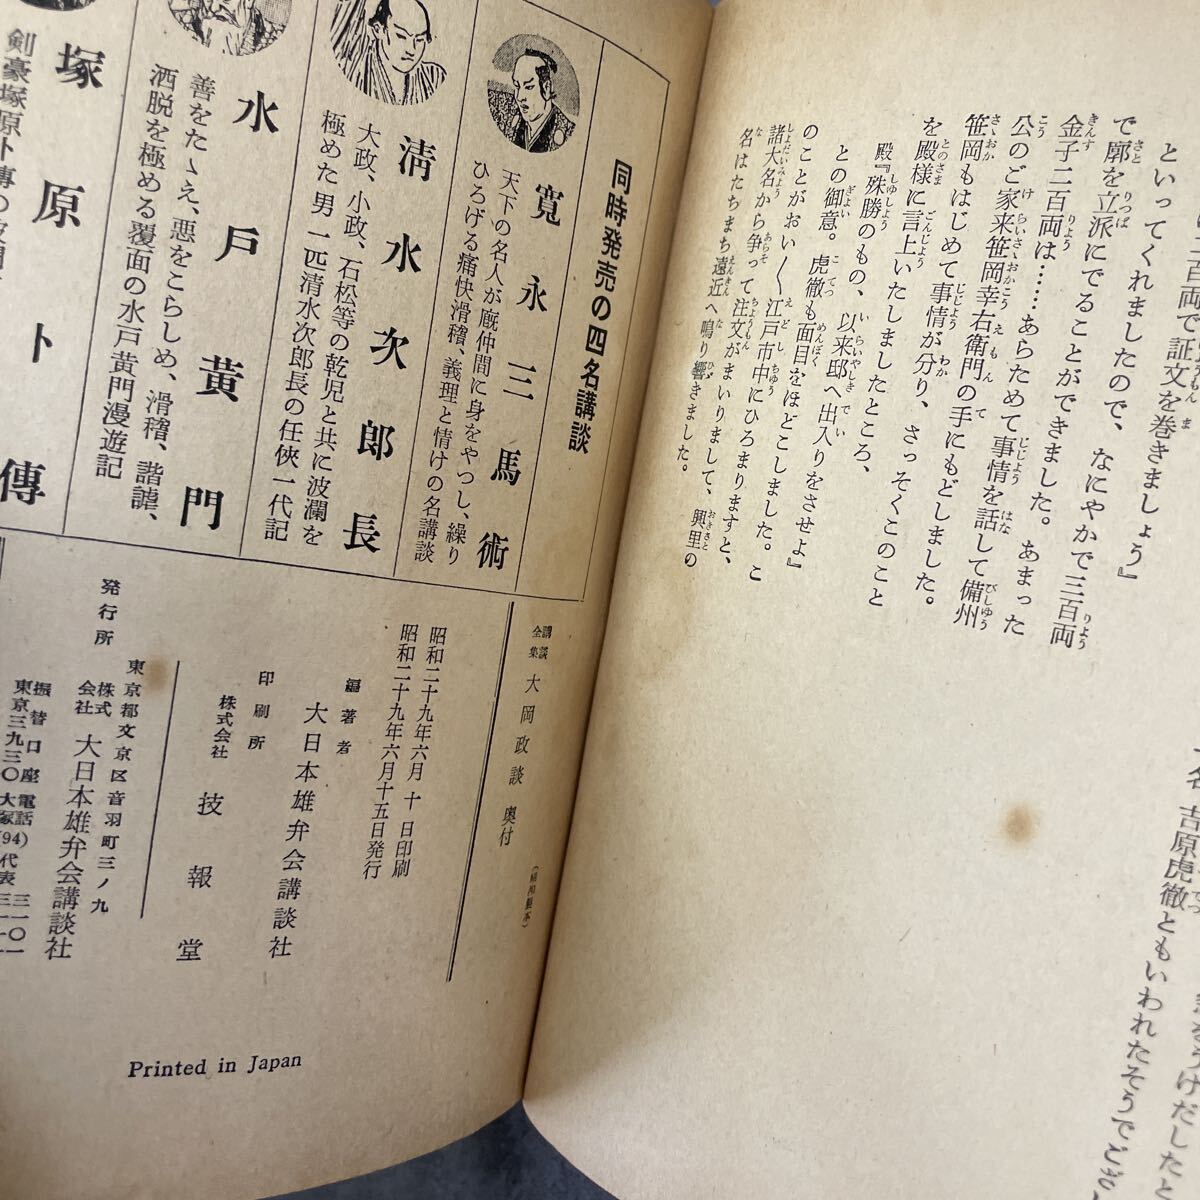 二百両で証文を巻きましょう』
といってくれましたので、なにやかで三百両
で廓を立派にでることができました。あまった
金子二百両は……あらためて事情を話して備州
公のご家来笹岡幸右衛門の手にもどしました。
笹岡もはじめて事情が分り、さっそくこのこと
を殿様に言上いたしましたところ、
殿『殊勝のもの、以来邸へ出入りをさせよ』
との御意。虎徹も面目をほどこしました。こ
のことがおい〳〵江戸市中にひろまりますと、
諸大名から争って注文がまいりまして、興里の
名はたちまち遠近へ鳴り響きました。
吉原虎徹ともいわれたそうでござ
同時発売の四名講談
寛永三馬術
天下の名人が廐仲間に身をやつし、繰り
ひろげる痛快滑稽、義理と情けの名講談
清水次郎長
大政、小政、石松等の乾児と共に波瀾を
極めた男一匹清水次郎長の任俠一代記
水戸黄門
善をたゝえ、悪をこらしめ、滑稽、諧謔、
洒脱を極める覆面の水戸黄門漫遊記
塚原卜傳
剣豪塚原卜傳の
講談全集 大岡政談 奥付
昭和二十九年六月十日印刷
昭和二十九年六月十五日発行
編著者 大日本雄弁会講談社
印刷所 株式会社 技報堂
発行所
東京都文京区音羽町三ノ九
株式会社 大日本雄弁会講談社
振替口座 東京三九三〇
電話 大塚(94) 代表
Printed in Japan